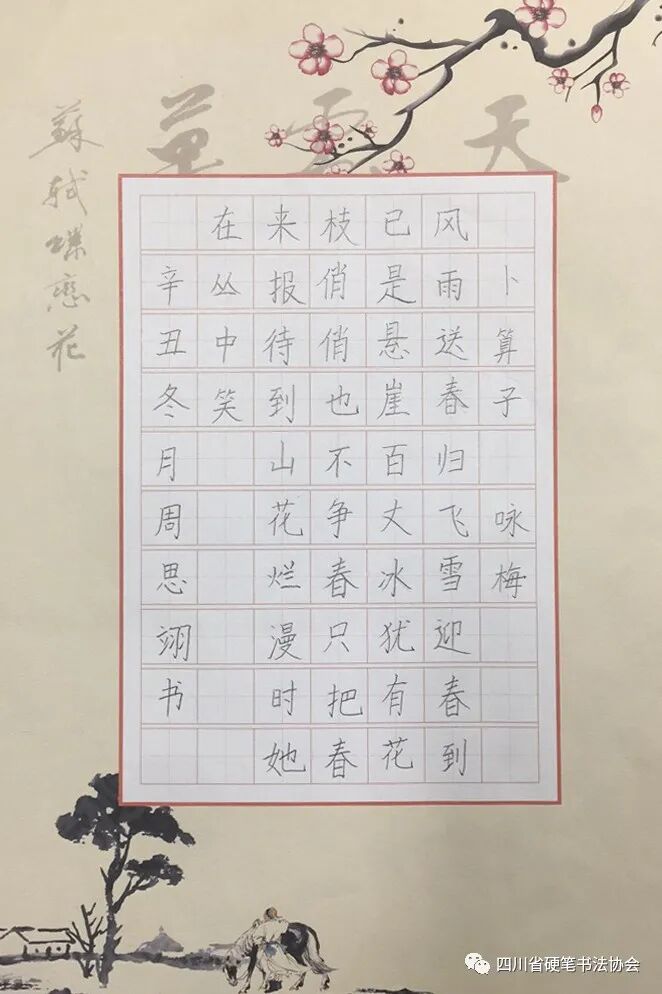 天
卜算子 咏梅
风雨送春归飞雪迎春到
已是悬崖百丈冰犹有花
枝俏俏也不争春只把春
来报待到山花烂漫时她
在丛中笑
辛丑冬月周思翊书
蘇軾蝶戀花
四川省硬笔书法协会